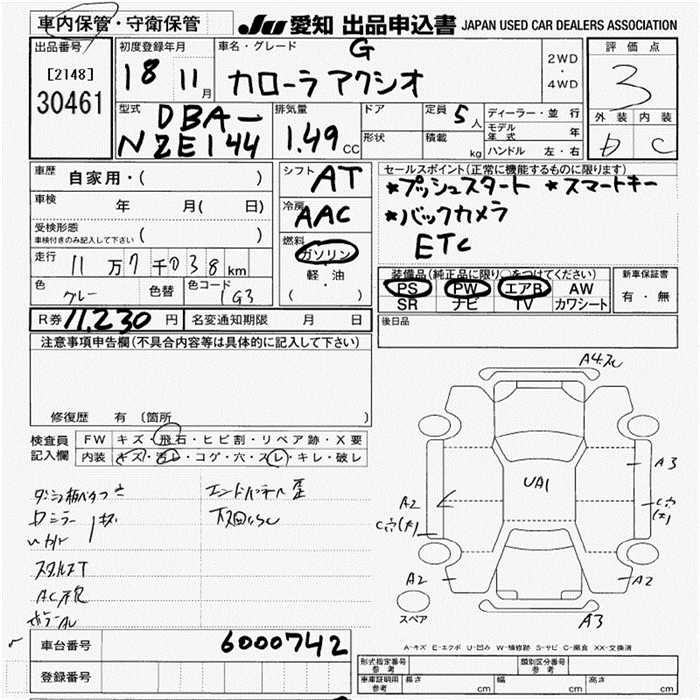 車内保管・守衛保管
JU 愛知 出品申込書 JAPAN USED CAR DEALERS ASSOCIATION
出品番号 [2148] 30461
初度登録年月 18 11月
車名・グレード G
カローラ アクシオ
2WD ・ 4WD
評価点 3
外装 内装
b C
型式 DBA-
NZE144
排気量 1.49 CC
ドア
形状
定員 5人
積載 kg
ディーラー・並行
モデル年式 年
ハンドル 左・右
車歴 自家用・( )
車検 年 月( 日)
受検形態 ( )
車検付きのみ記入して下さい
走行 11万7千038km
色 グレー 色替 色コード 1G3
シフト AT
冷房 AAC
燃料 ガソリン
軽・油
( )
セールスポイント(正常に機能するものに限ります)
*プッシュスタート *スマートキー
*バックカメラ
ETC
装備品(純正品に限り○をつけてください)
PS PW エアB AW
SR ナビ TV カワシート
新車保証書
有・無
R券 11,230円 名変通知期限 月 日
後日品
注意事項申告欄(不具合内容等は具体的に記入して下さい)
修復歴 有 (箇所
検査員記入欄
FW キズ・飛石・ヒビ割・リペア跡・X要
内装 キズ・汚レ・コゲ・穴・スレ・キレ・破レ
UA1
A3
A2
A2
A2
A3
スペア
A-キズ E-エクボ U-凹み W-補修跡 S-サビ C-腐食 XX-交換済
車台番号 6000742
登録番号
形式指定番号 参考
類別区分番号 参考
車庫証明用 参考 長さ cm 幅 cm 高さ cm